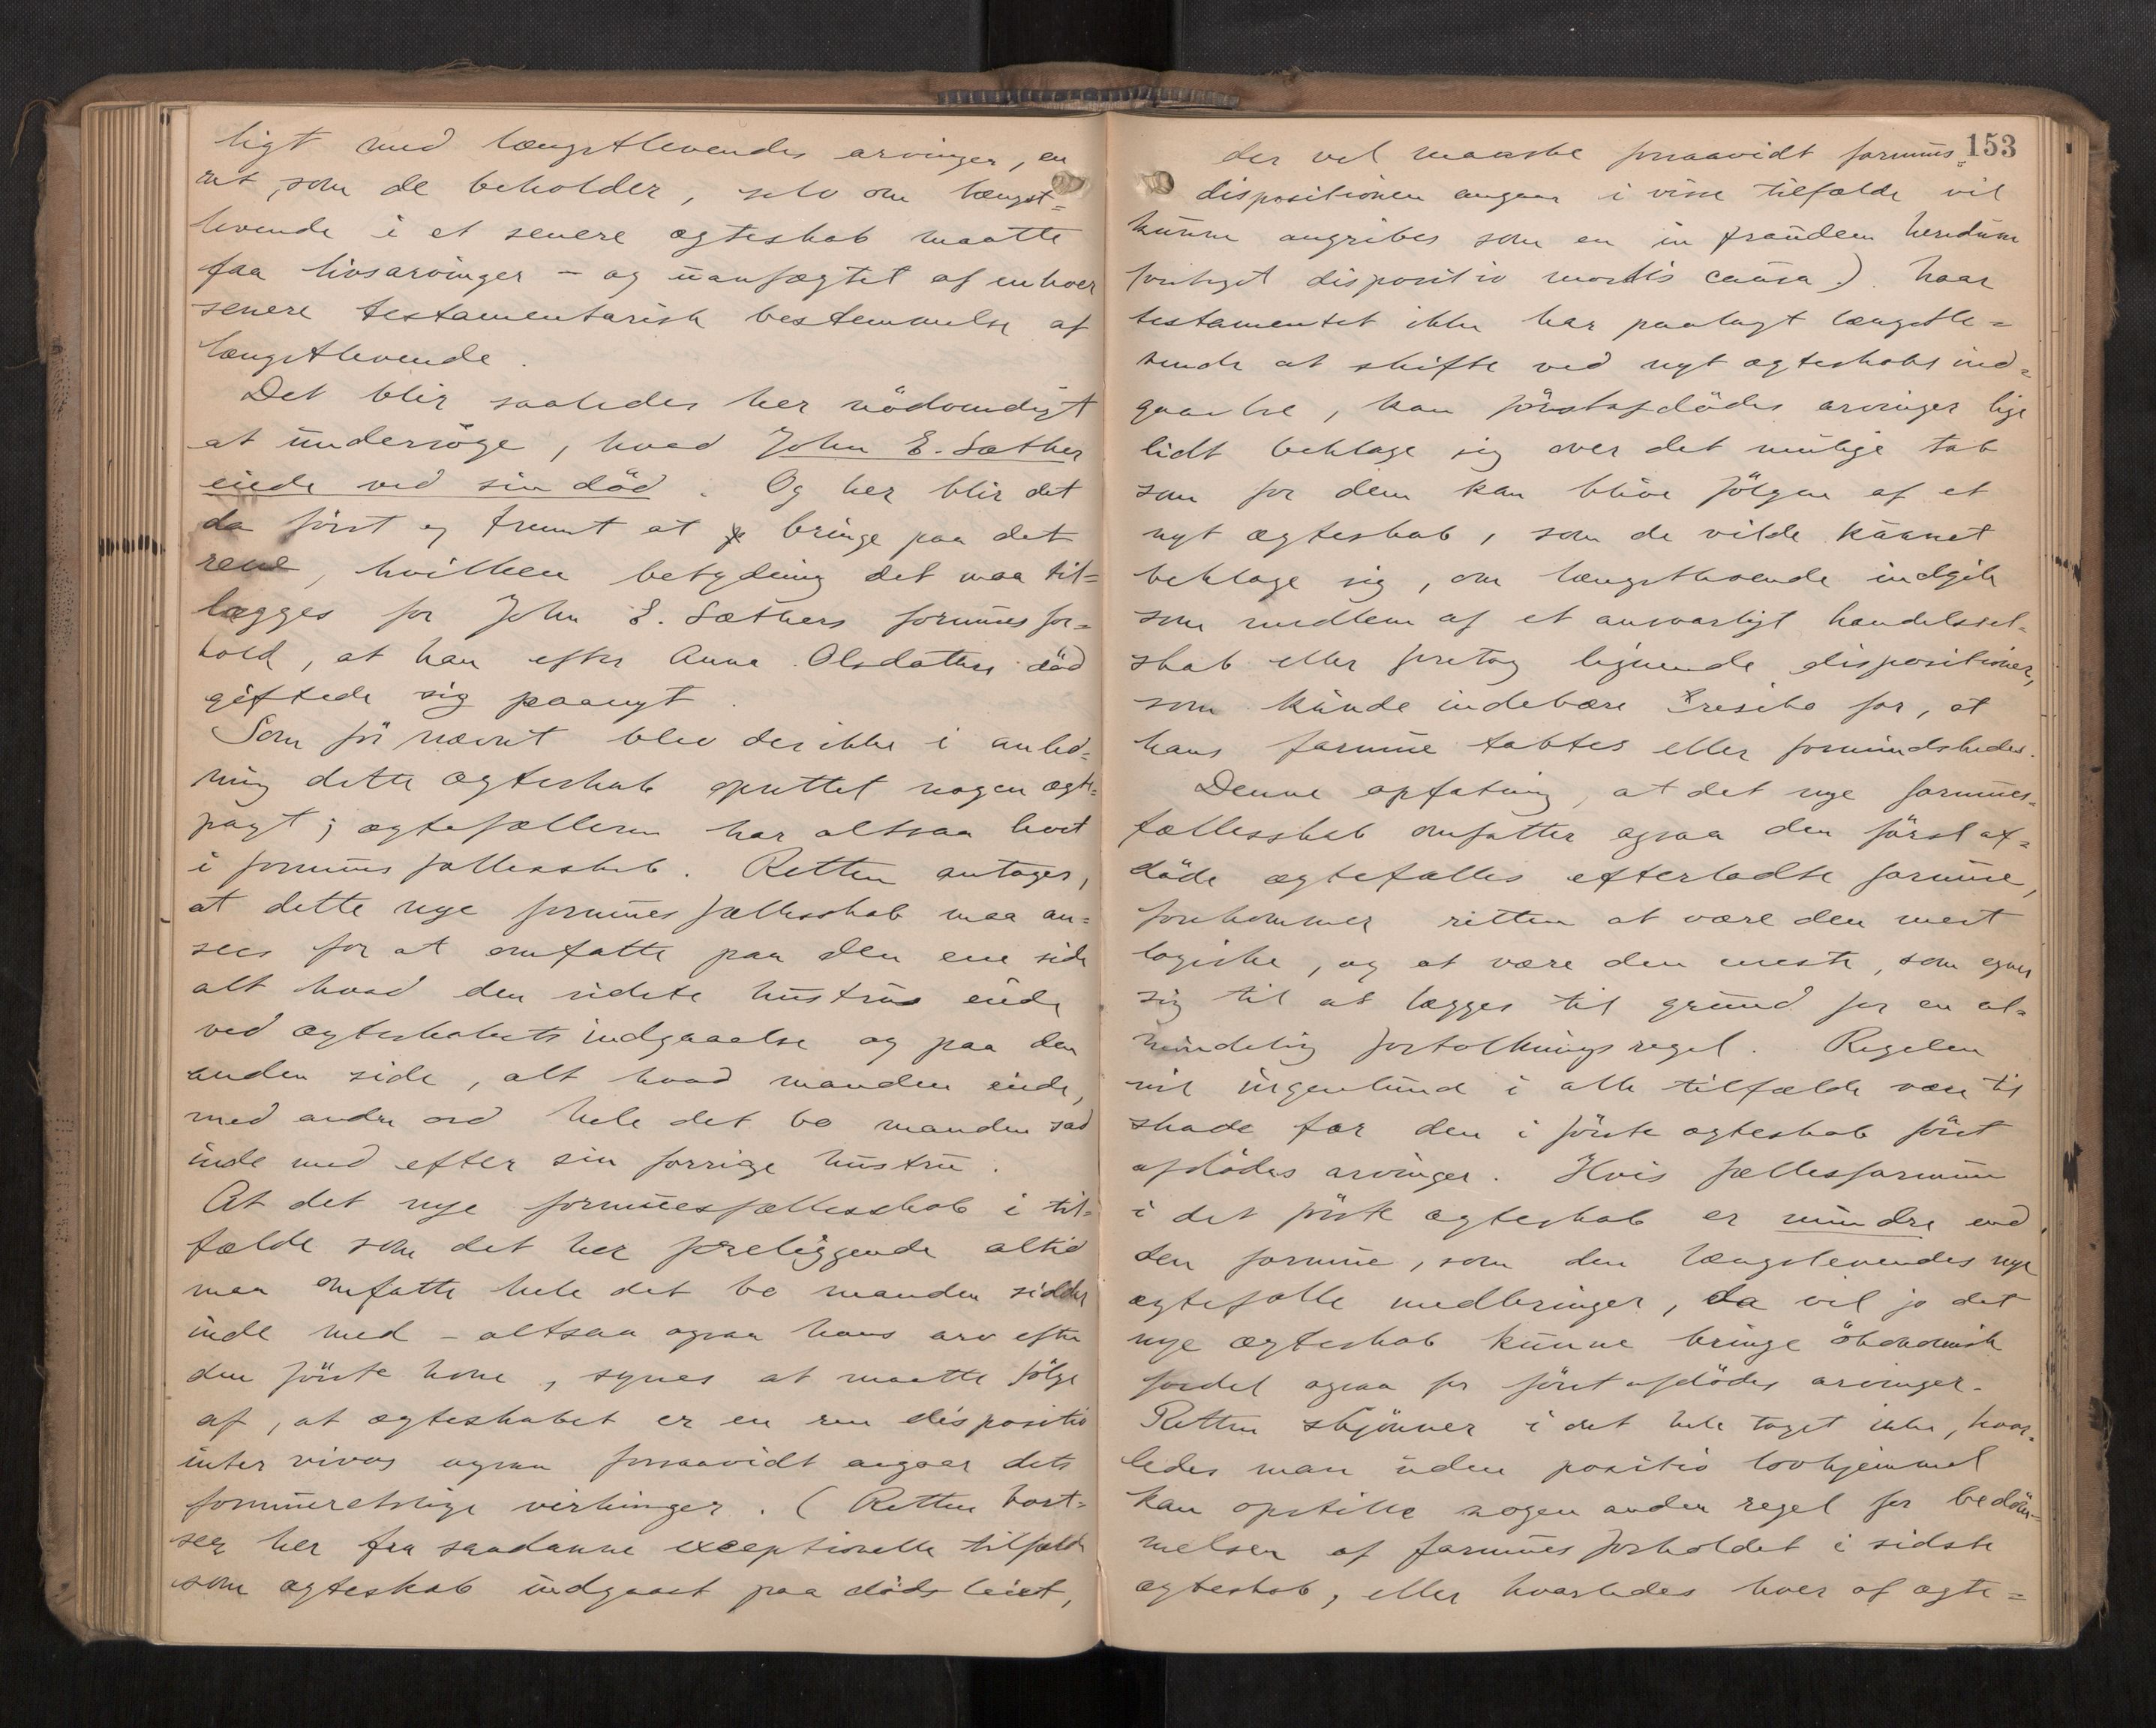 ligt med længstlevendes arvinger, en
ret, som de beholder, selv om længst=
levende i et senere ægteskab maatte
faa livsarvinger – og uanfægtet af enhver
senere testamentarisk bestemmelse af
længstlevende.
Det blir saaledes her nödvendigt
at undersöge, hvad John E. Sæther
eiede ved sin död. Og her blir det
da först og fremst at bringe paa det
rene, hvilken betydning det maa til=
lægges for John E. Sæthers formues for=
hold, at han efter Anna Olsdatters död
giftede sig paanyt.
Som för nævnt blev der ikke i anled=
ning dette ægteskab oprettet nogen ægte=
pagt; ægtefællerne har altsaa levet
i formuesfællesskab. Retten antager,
at dette nye formuesfællesskab maa an=
sees for at omfatte paa den ene side
alt hvad den sidste hustru eiede
ved ægteskabets indgaaelse og paa den
anden side, alt hvad manden eiede,
med andre ord hele det bo manden sad
inde med efter sin forrige hustru.
At det nye formuesfællesskab i til=
fælde som det her foreliggende altid
maa omfatte hele det bo manden sidder
inde med – altsaa ogsaa hans arv efter
den förste kone, synes at maatte fölge
af, at ægteskabet er en ren dispositio
inter vivos ogsaa forsaavidt angaar dets
formueretslige virkninger. (Retten bort=
ser her fra saadanne exceptionelle tilfælde
som ægteskab indgaaet paa dödsleiet,
153
der vel maaske forsaavidt formues=
dispositionen angaar i visse tilfælde vil
kunne angribes som en in fraudem heredum
foretaget dispositio mortis causa). Naar
testamentet ikke har paalagt længstle=
vende at skifte ved nyt ægteskabs ind=
gaaelse, kan förstafdödes arvinger lige
lidt beklage sig over det mulige tab
som for dem kan blive fölgen af et
nyt ægteskab, som de vilde kunnet
beklage sig, om længstlevende indgik
som medlem af et ansvarligt handelssel=
skab eller foretog lignende dispositioner,
som kunde indebære resiko for, at
hans formue tabtes eller formindskedes.
Denne opfatning, at det nye formues=
fællesskab omfatter ogsaa den först af=
döde ægtefælles efterladte formue,
forekommer retten at være den mest
logiske, og at være den eneste, som egner
sig til at lægges til grund for en al=
mindelig fortolkningsregel. Regelen
vil ingenlunde i alle tilfælde være til
skade for den i förste ægteskab först
afdödes arvinger. Hvis fællesformuen
i det förste ægteskab er mindre end
den formue, som den længslevendes nye
ægtefælle medbringer, da vil jo det
nye ægteskab kunne bringe ökonomisk
fordel ogsaa for först afdödes arvinger.
Retten skjönner i det hele taget ikke, hvor=
ledes man uden positiv lovhjemmel
kan opstille nogen anden regel for bedöm=
melsen af formuesforholdet i sidste
ægteskab, eller hvorledes hver af ægte=